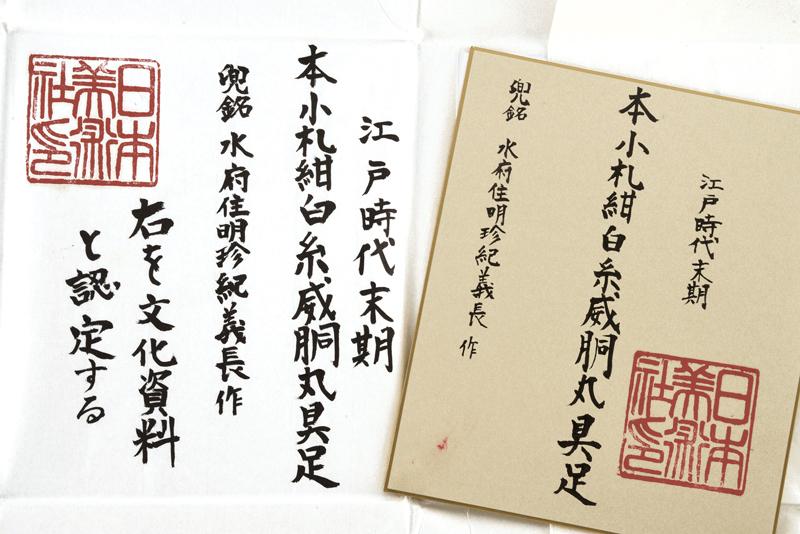 江戸時代末期
本小札紺白糸威胴丸具足
兜銘 水府住明珍紀義長作
右を文化資料
と認定する
日本
江戸時代末期
本小札紺白糸威胴丸具足
兜銘 水府住明珍紀義長 作
日本